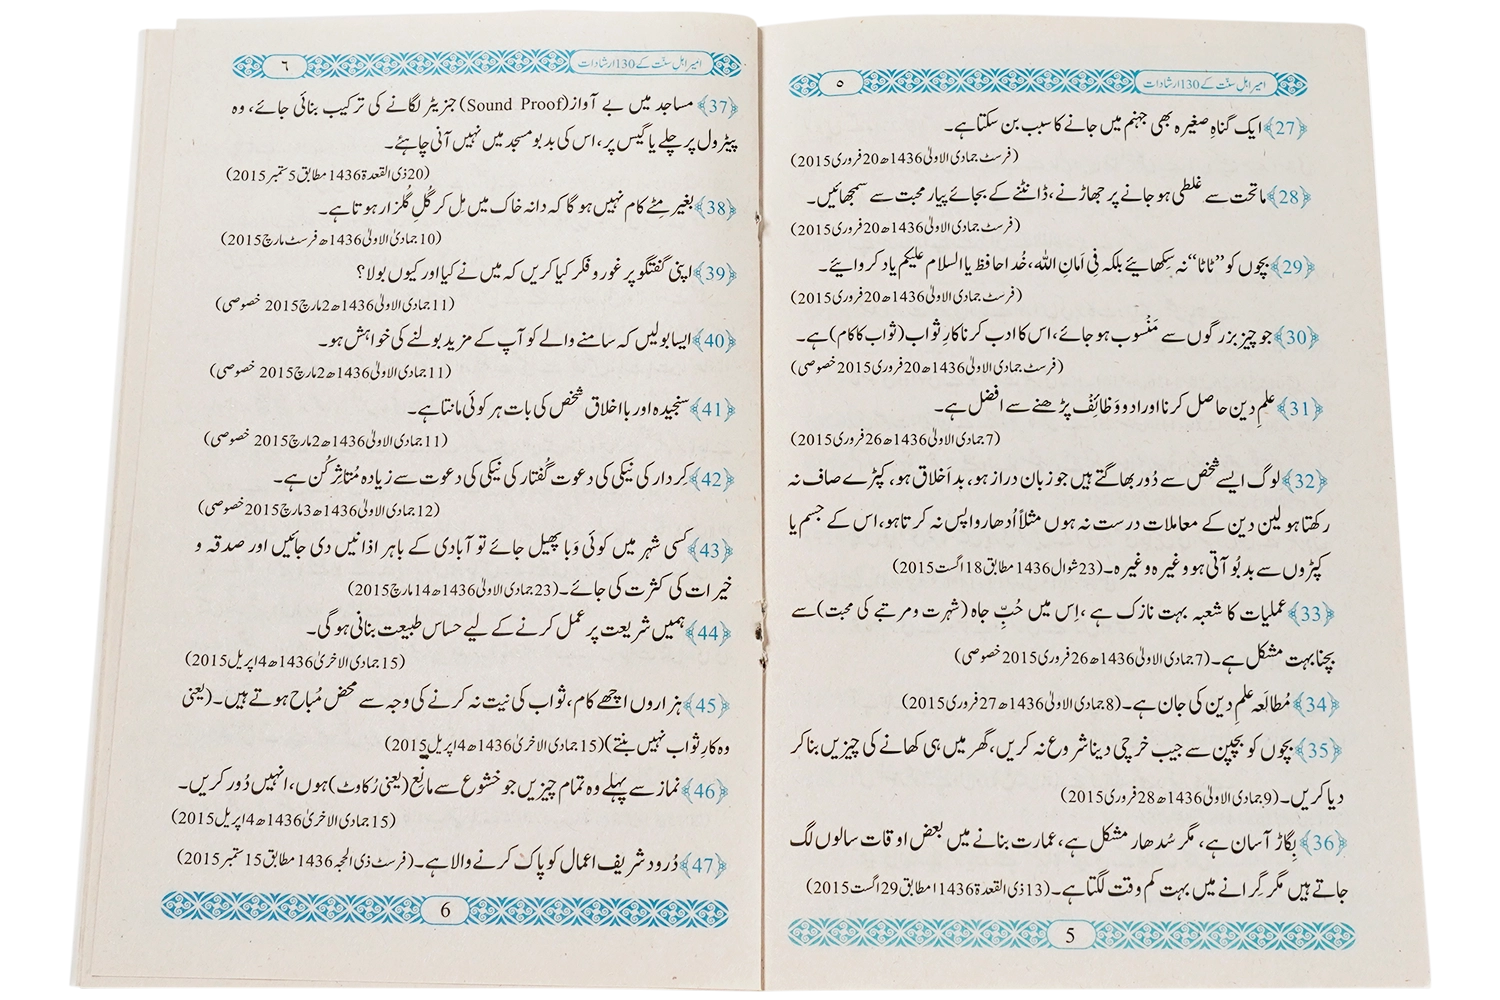 امیر اہل سنّت کے 130 ارشادات
٥
﴿27﴾ ایک گناہِ صغیرہ بھی جہنم میں جانے کا سبب بن سکتا ہے۔
(فرسٹ جمادی الاولیٰ 1436ھ 20 فروری 2015)
﴿28﴾ ماتحت سے غلطی ہو جانے پر جھاڑنے، ڈانٹنے کے بجائے پیار محبت سے سمجھائیں۔
(فرسٹ جمادی الاولیٰ 1436ھ 20 فروری 2015)
﴿29﴾ بچوں کو ”ٹاٹا“ نہ سِکھائیے بلکہ فِی اَمَانِ اللہ، خُدا حافظ یا السلام علیکم یاد کروائیے۔
(فرسٹ جمادی الاولیٰ 1436ھ 20 فروری 2015)
﴿30﴾ جو چیز بزرگوں سے مَنْسوب ہو جائے، اس کا ادب کرنا کارِ ثواب (ثواب کا کام) ہے۔
(فرسٹ جمادی الاولیٰ 1436ھ 20 فروری 2015 خصوصی)
﴿31﴾ علمِ دین حاصل کرنا اوراد و وَظائِف پڑھنے سے افضل ہے۔
(7 جمادی الاولیٰ 1436ھ 26 فروری 2015)
﴿32﴾ لوگ ایسے شخص سے دُور بھاگتے ہیں جو زبان دراز ہو، بداَخلاق ہو، کپڑے صاف نہ
رکھتا ہو لین دین کے معاملات درست نہ ہوں مثلاً اُدھار واپس نہ کرتا ہو، اس کے جسم یا
کپڑوں سے بدبُو آتی ہو وغیرہ وغیرہ۔ (23 شوال 1436 مطابق 18 اگست 2015)
﴿33﴾ عملیات کا شعبہ بہت نازک ہے، اِس میں حُبِّ جاہ (شہرت و مرتبے کی محبت) سے
بچنا بہت مشکل ہے۔ (7 جمادی الاولیٰ 1436ھ 26 فروری 2015 خصوصی)
﴿34﴾ مُطالَعہ علمِ دین کی جان ہے۔ (8 جمادی الاولیٰ 1436ھ 27 فروری 2015)
﴿35﴾ بچوں کو بچپن سے جیب خرچی دینا شروع نہ کریں، گھر میں ہی کھانے کی چیزیں بنا کر
دیا کریں۔ (9 جمادی الاولیٰ 1436ھ 28 فروری 2015)
﴿36﴾ بِگاڑ آسان ہے، مگر سُدھار مشکل ہے، عمارت بنانے میں بعض اوقات سالوں لگ
جاتے ہیں مگر گِرانے میں بہت کم وقت لگتا ہے۔ (13 ذی القعدۃ 1436ا مطابق 29 اگست 2015)
5
امیر اہل سنّت کے 130 ارشادات
٦
﴿37﴾ مساجد میں بے آواز (Sound Proof) جنریٹر لگانے کی ترکیب بنائی جائے، وہ
پیٹرول پر چلے یا گیس پر، اس کی بدبو مسجد میں نہیں آنی چاہئے۔
(20 ذی القعدۃ 1436 مطابق 5 ستمبر 2015)
﴿38﴾ بغیر مِٹے کام نہیں ہوگا کہ دانہ خاک میں مِل کر گُلِ گُلزار ہوتا ہے۔
(10 جمادی الاولیٰ 1436ھ فرسٹ مارچ 2015)
﴿39﴾ اپنی گفتگو پر غور و فکر کیا کریں کہ میں نے کیا اور کیوں بولا؟
(11 جمادی الاولیٰ 1436ھ 2 مارچ 2015 خصوصی)
﴿40﴾ ایسا بولیں کہ سامنے والے کو آپ کے مزید بولنے کی خواہش ہو۔
(11 جمادی الاولیٰ 1436ھ 2 مارچ 2015 خصوصی)
﴿41﴾ سنجیدہ اور با اخلاق شخص کی بات ہر کوئی مانتا ہے۔
(11 جمادی الاولیٰ 1436ھ 2 مارچ 2015 خصوصی)
﴿42﴾ کِردار کی نیکی کی دعوت گُفتار کی نیکی کی دعوت سے زیادہ مُتاثِر کُن ہے۔
(12 جمادی الاولیٰ 1436ھ 3 مارچ 2015 خصوصی)
﴿43﴾ کسی شہر میں کوئی وَبا پھیل جائے تو آبادی کے باہر اذانیں دی جائیں اور صدقہ و
خیرات کی کثرت کی جائے۔ (23 جمادی الاولیٰ 1436ھ 14 مارچ 2015)
﴿44﴾ ہمیں شریعت پر عمل کرنے کے لیے حساس طبیعت بنانی ہوگی۔
(15 جمادی الاخریٰ 1436ھ 4 اپریل 2015)
﴿45﴾ ہزاروں اچھے کام، ثواب کی نیت نہ کرنے کی وجہ سے محض مُباح ہوتے ہیں۔ (یعنی
وہ کارِ ثواب نہیں بنتے) (15 جمادی الاخریٰ 1436ھ 4 اپریل 2015)
﴿46﴾ نماز سے پہلے وہ تمام چیزیں جو خشوع سے مانِع (یعنی رُکاوٹ) ہوں، انہیں دُور کریں۔
(15 جمادی الاخریٰ 1436ھ 4 اپریل 2015)
﴿47﴾ دُرود شریف اعمال کو پاک کرنے والا ہے۔ (فرسٹ ذی الحجہ 1436 مطابق 15 ستمبر 2015)
6